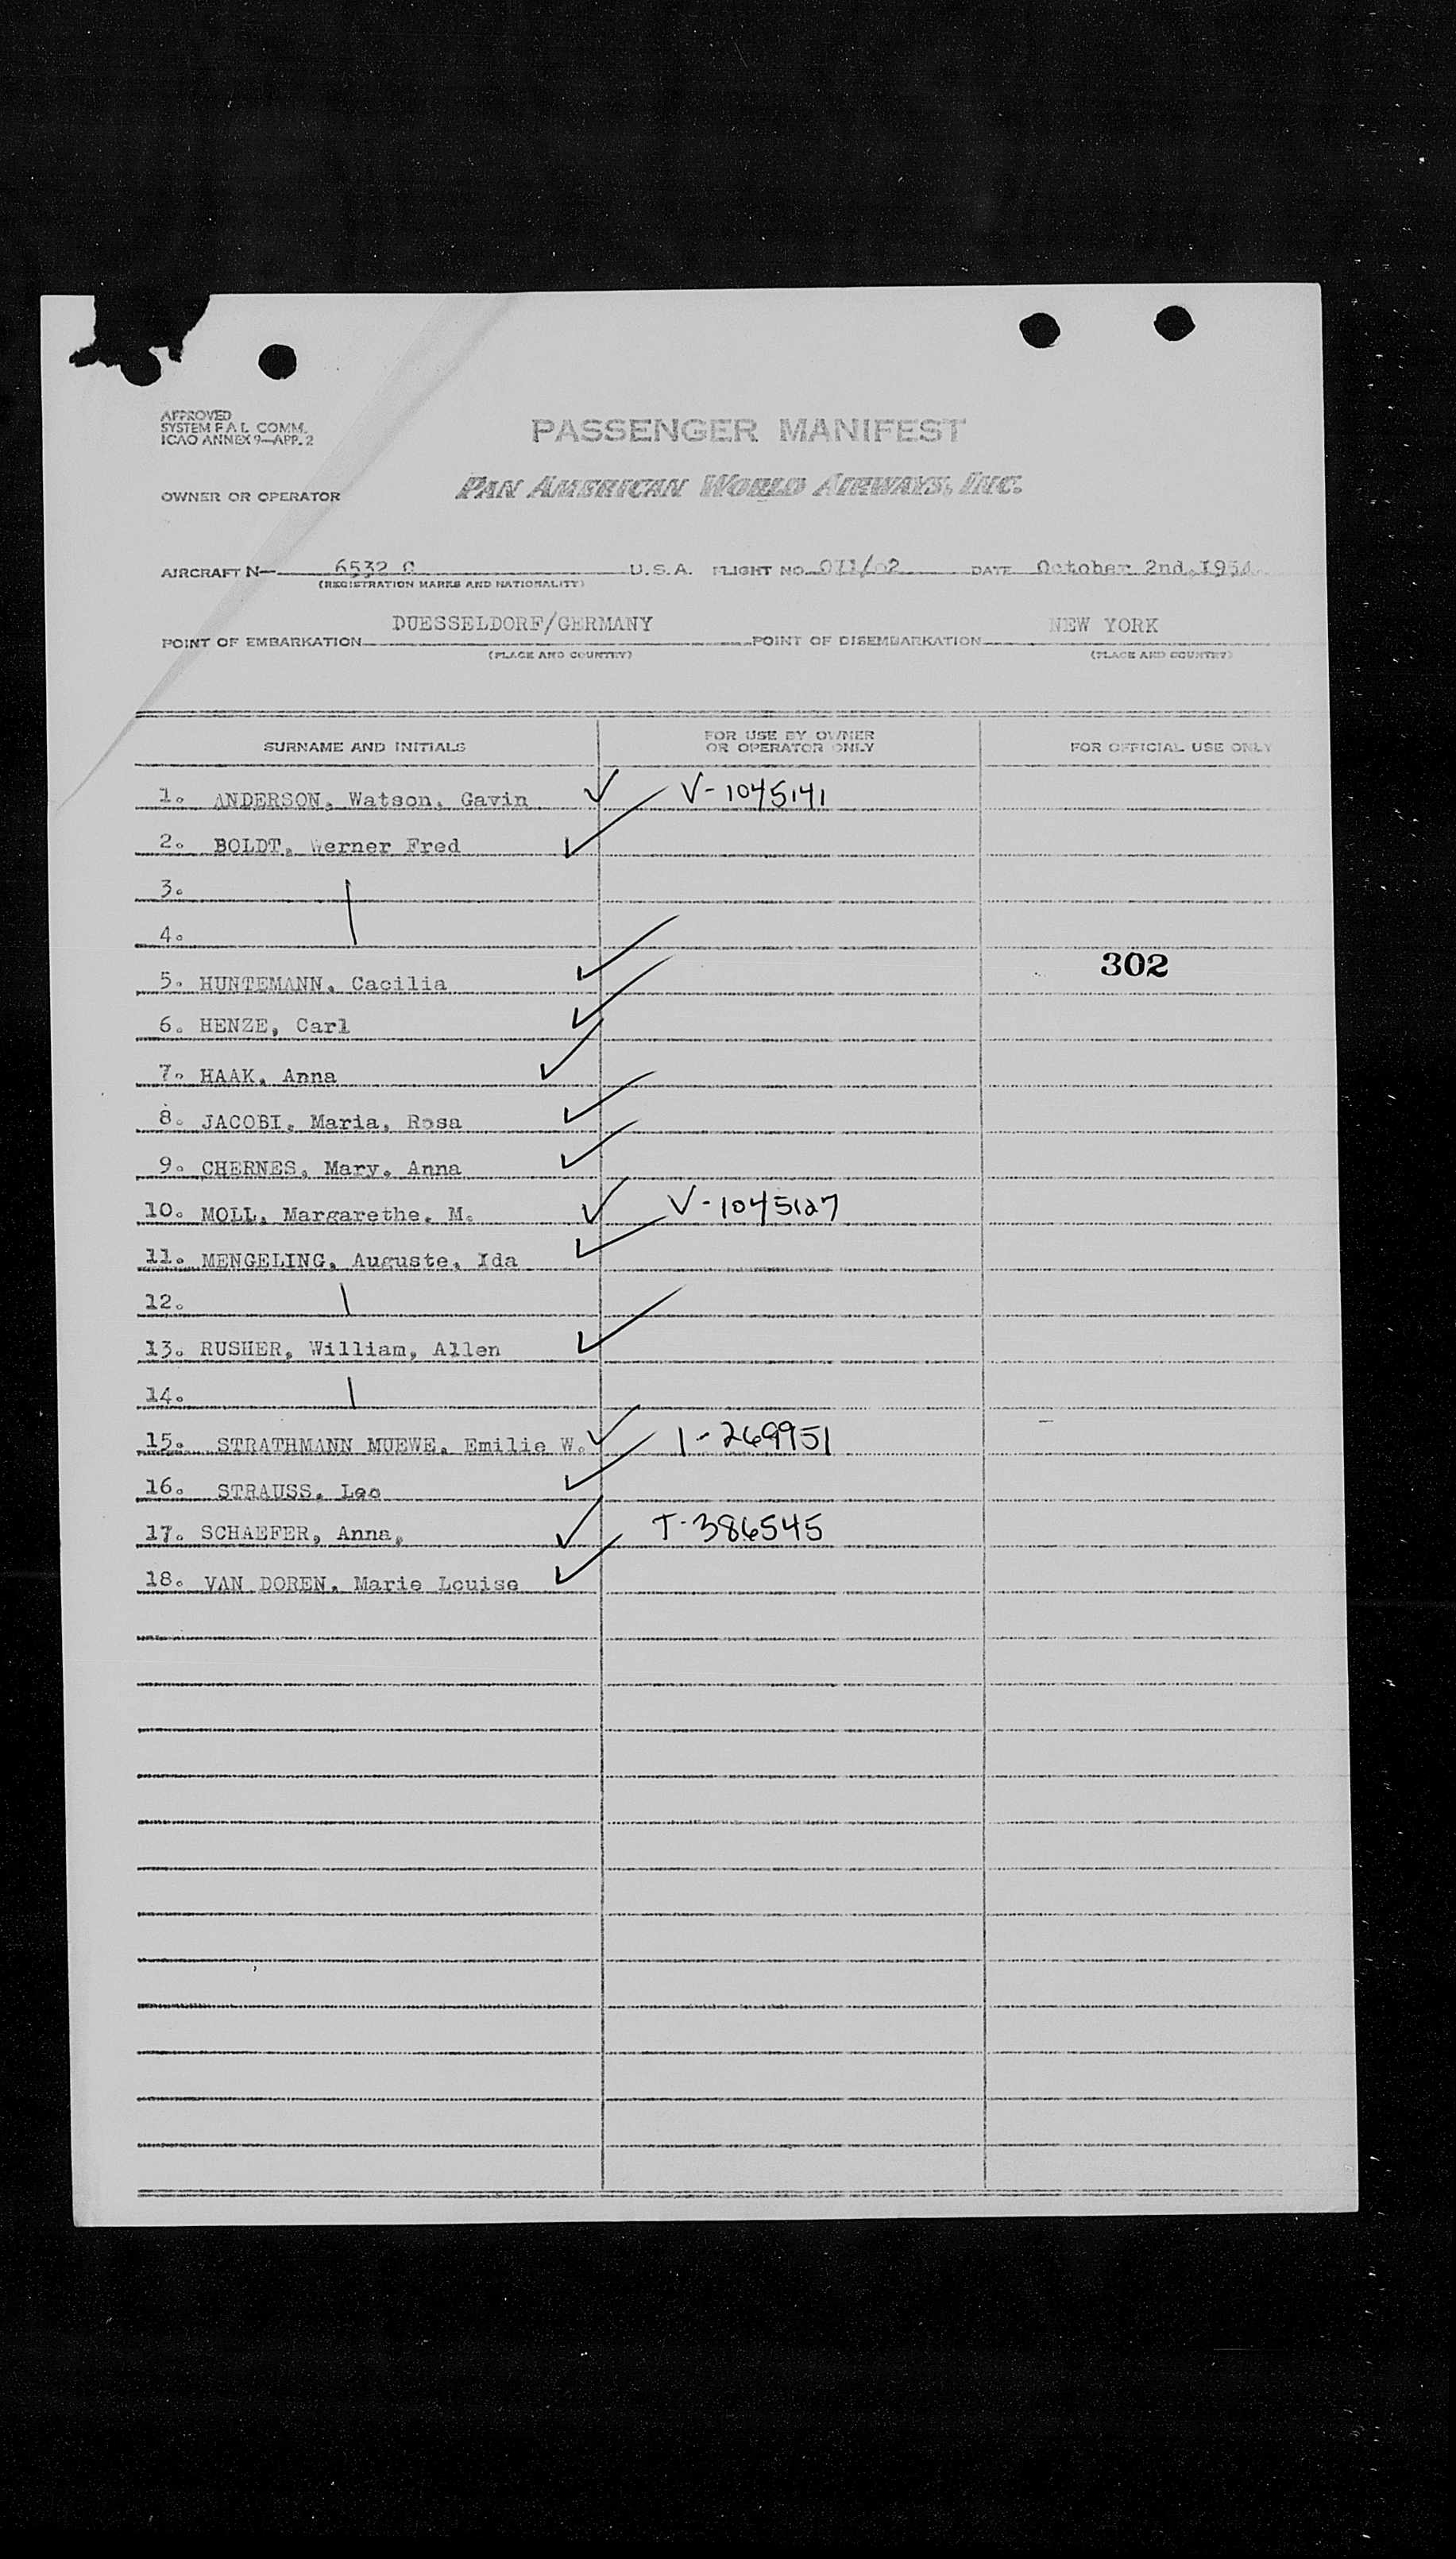 APPROVED
SYSTEM F A L COMM.
ICAO ANNEX 9—APP. 2
PASSENGER MANIFEST
OWNER OR OPERATOR PAN AMERICAN WORLD AIRWAYS, INC.
AIRCRAFT N— 6532 C U.S.A. FLIGHT NO. 071/02 DATE October 2nd, 1954
(REGISTRATION MARKS AND NATIONALITY)
POINT OF EMBARKATION DUESSELDORF/GERMANY POINT OF DISEMBARKATION NEW YORK
(PLACE AND COUNTRY) (PLACE AND COUNTRY)
SURNAME AND INITIALS FOR USE BY OWNER OR OPERATOR ONLY FOR OFFICIAL USE ONLY
1. ANDERSON, Watson, Gavin V-1045141
2. BOLDT, Werner Fred
3.
4.
302
5. HUNTEMANN, Cacilia
6. HENZE, Carl
7. HAAK, Anna
8. JACOBI, Maria, Rosa
9. CHERNES, Mary, Anna
10. MOLL, Margarethe, M. V-1045127
11. MENGELING, Auguste, Ida
12.
13. RUSHER, William, Allen
14.
15. STRATHMANN MUEWE, Emilie W. I-269951
16. STRAUSS, Leo
17. SCHAEFER, Anna, T-386545
18. VAN DOREN, Marie Louise